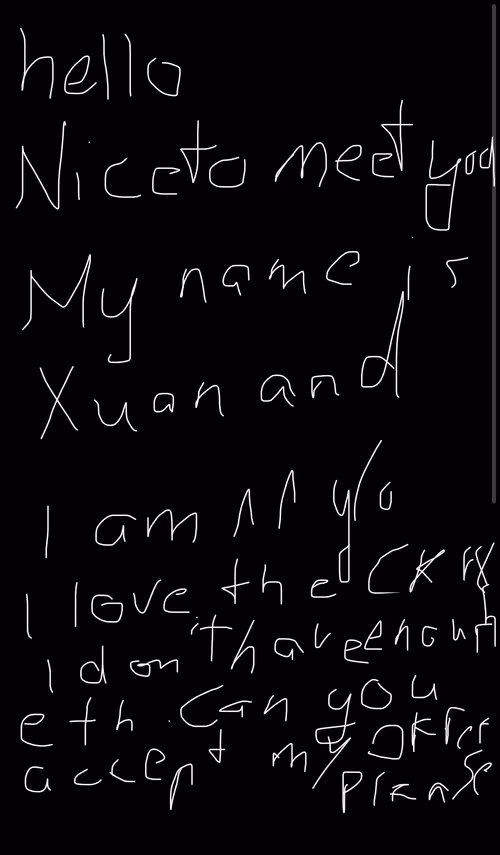 hello
Nice to meet you
My name is
Xuan and
I am 11 y/o
I love the
I don't have enough
eth. Can you
accept my offer
please